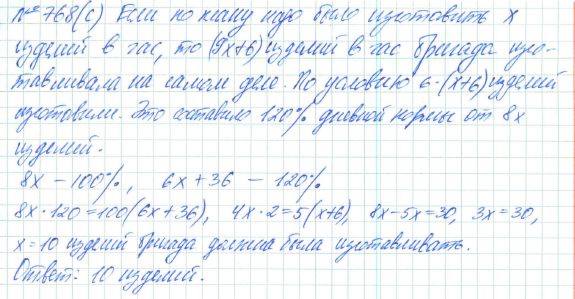 № 768(с) Если по плану надо было изготовить х
изделий в час, то (х+6) изделий в час бригада изго-
тавливала на самом деле. По условию 6·(х+6) изделий
изготовили. Это составило 120% дневной нормы от 8х
изделий.
8х – 100%, 6х + 36 – 120%
8х · 120 = 100(6х + 36), 4х · 2 = 5(х+6), 8х – 5х = 30, 3х = 30,
х = 10 изделий бригада должна была изготавливать.
Ответ: 10 изделий.